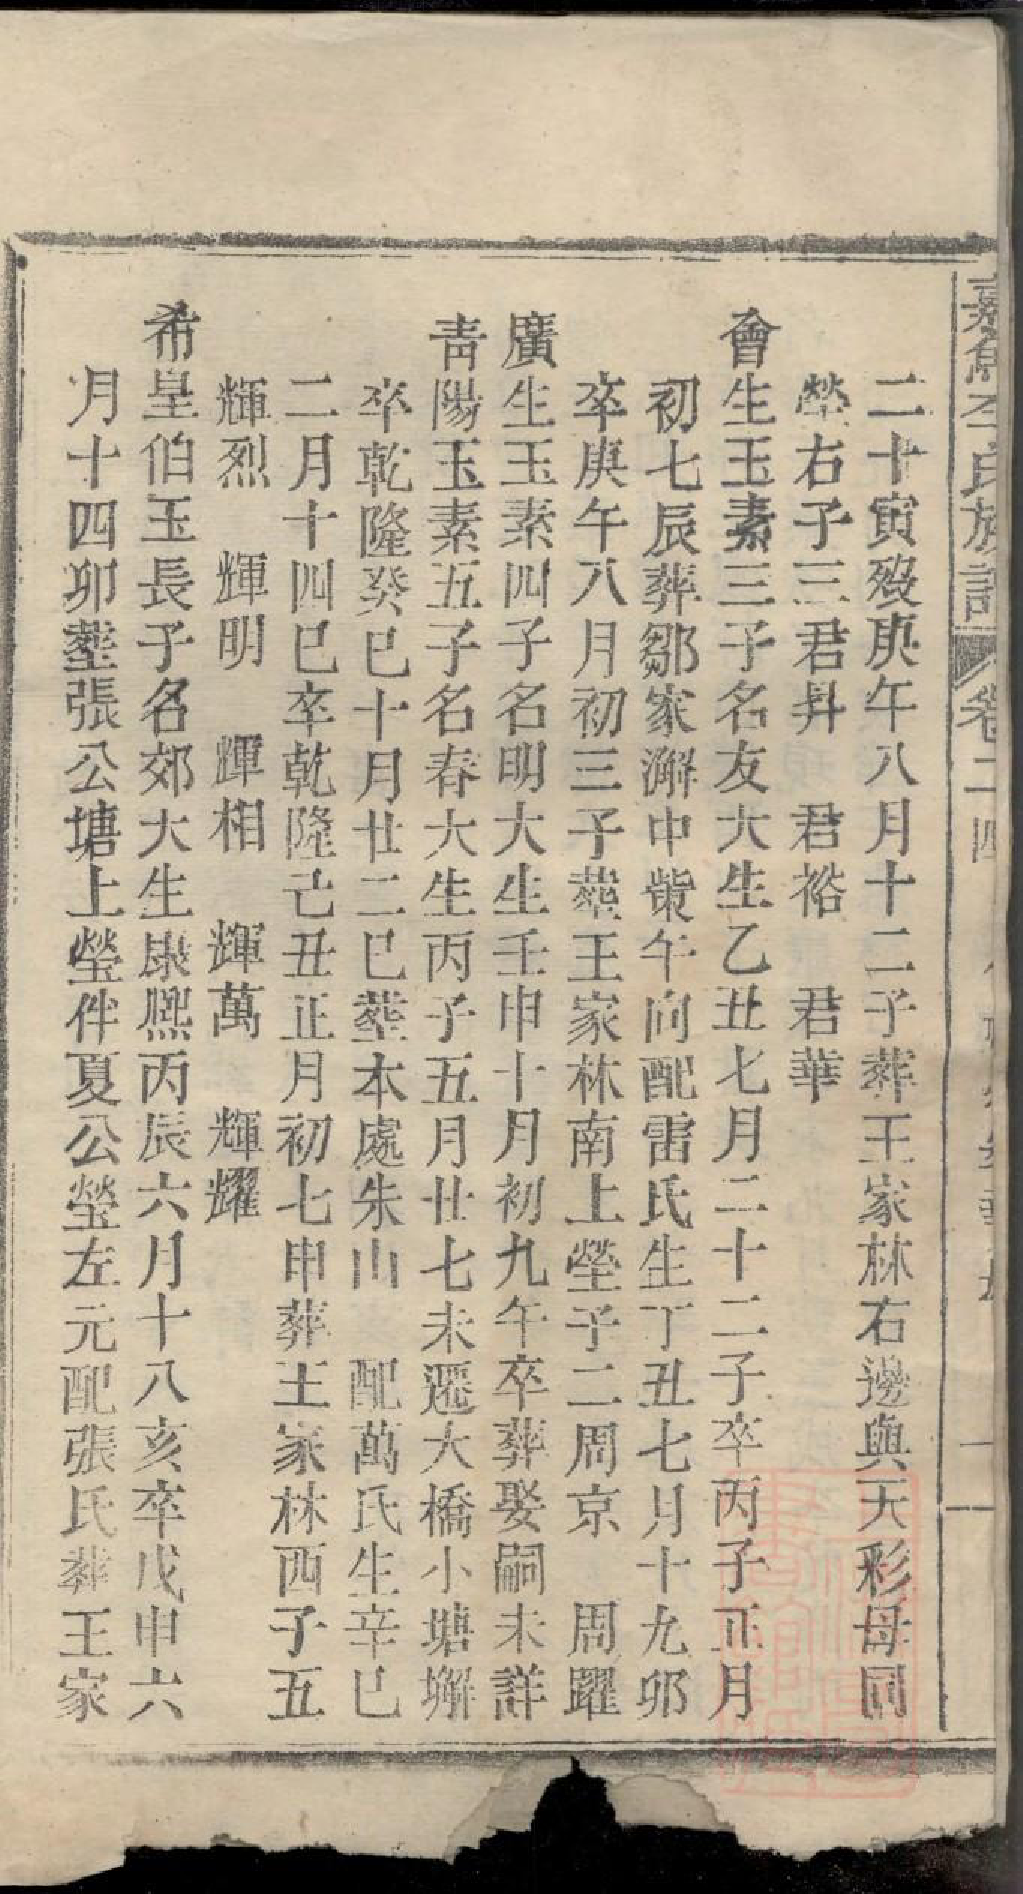 嘉魚李氏族譜 卷二四
二十寅歿庚午八月十二子葬王家林右邊與天彩母同
塋右子三君昇 君裕 君華
會生玉素三子名友大生乙丑七月二十二子卒丙子正月
初七辰葬鄒家澥中䇿午向配雷氏生丁丑七月十九卯
卒庚午八月初三子葬王家林南上塋子二周京 周躍
廣生玉素四子名明大生壬申十月初九午卒葬娶嗣未詳
青陽玉素五子名春大生丙子五月廿七未遷大橋小塘㙰
卒乾隆癸巳十月廿二巳塟本處朱山 配萬氏生辛巳
二月十四巳卒乾隆己丑正月初七申葬王家林西子五
輝烈 輝明 輝相 輝萬 輝耀
希皇伯玉長子名郊大生康熙丙辰六月十八亥卒戊申六
月十四卯塟張公塘上塋伴夏公塋左元配張氏葬王家